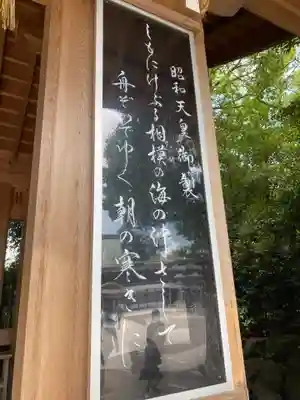 昭和天皇御製
ともにけぶる相模の海の沖さして
舟ぞいでゆく朝の寒きに